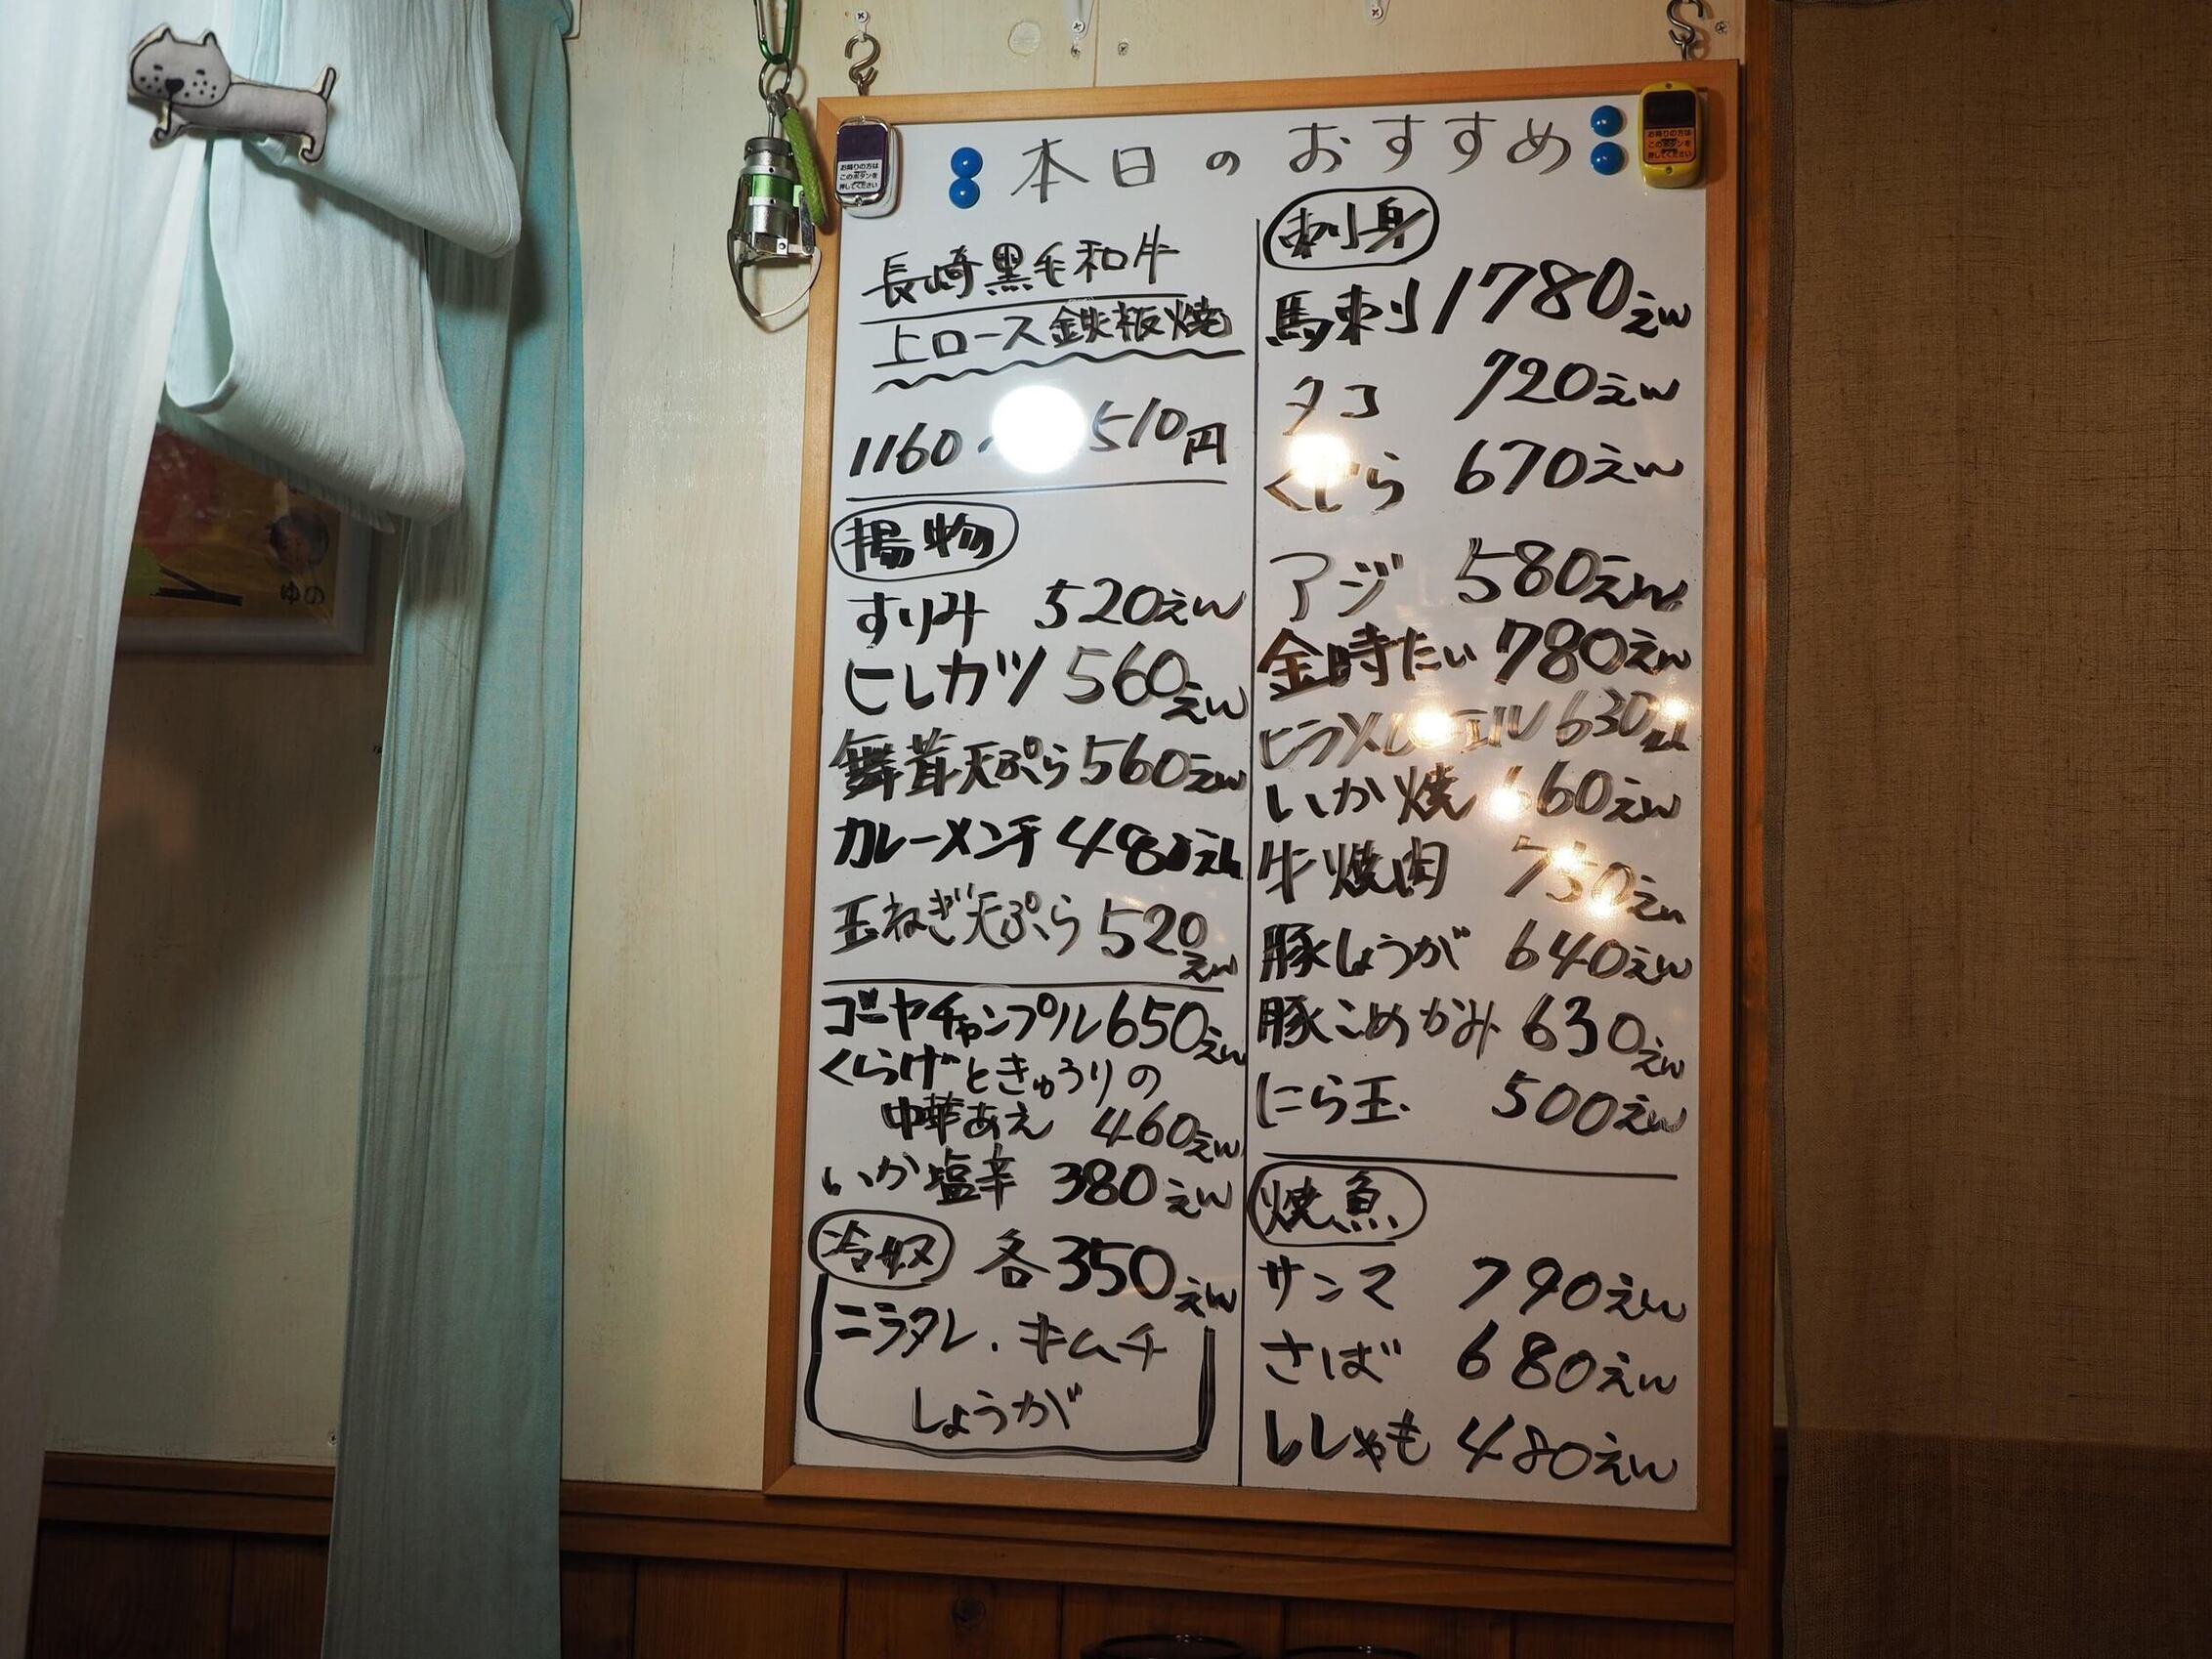 本日のおすすめ
お降りの方は
このボタンを
押してください
お降りの方は
このボタンを
押してください
長崎黒毛和牛
上ロース鉄板焼
1160 510円
揚物
すりみ 520えん
ヒレカツ 560えん
舞茸天ぷら 560えん
カレーメンチ 480えん
玉ねぎ天ぷら 520えん
ゴーヤチャンプル 650えん
くらげときゅうりの
中華あえ 460えん
いか塩辛 380えん
冷奴 各350えん
ニラタレ・キムチ
しょうが
刺身
馬刺 1780えん
タコ 720えん
くじら 670えん
アジ 580えん
金時たい 780えん
ヒラメ 630えん
いか焼 60えん
牛焼肉 750えん
豚しょうが 640えん
豚こめかみ 630えん
にら玉 500えん
焼魚
サンマ 790えん
さば 680えん
ししゃも 480えん
ゆの